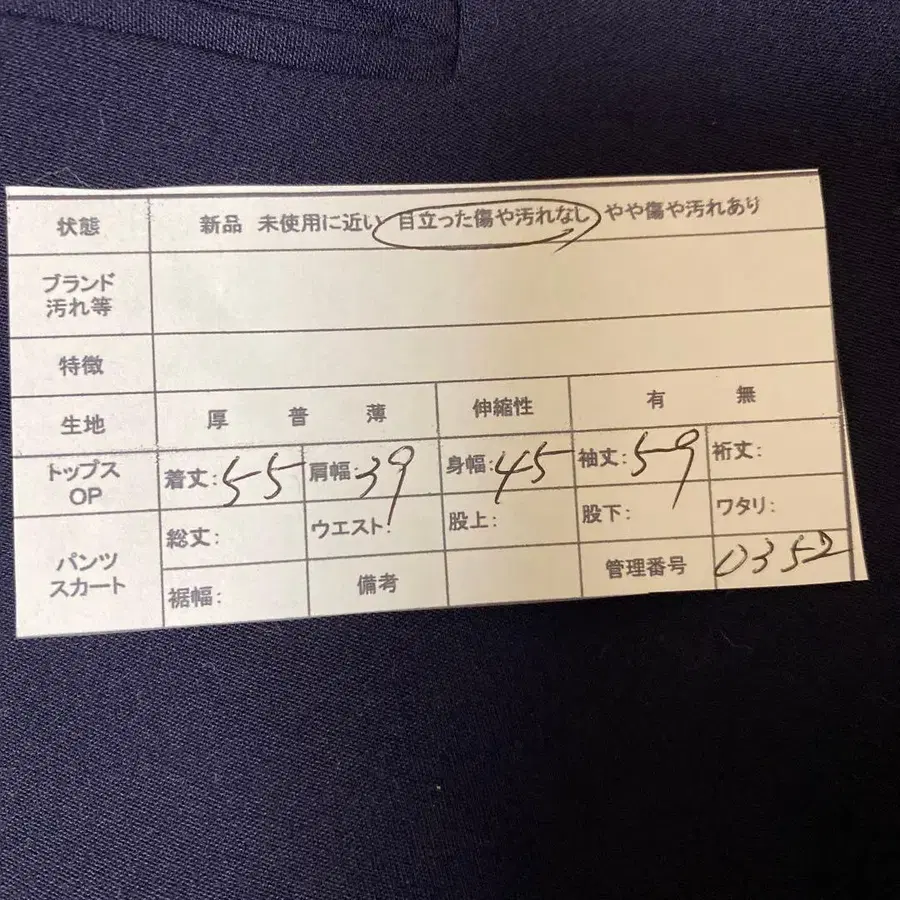 状態 新品 未使用に近い 目立った傷や汚れなし やや傷や汚れあり
ブランド
汚れ等
特徴
生地 厚 普 薄 伸縮性 有 無
トップス
OP
着丈:55 肩幅:39 身幅:45 袖丈:59 裄丈:
パンツ
スカート
総丈: ウエスト: 股上: 股下: ワタリ:
裾幅: 備考 管理番号 0352